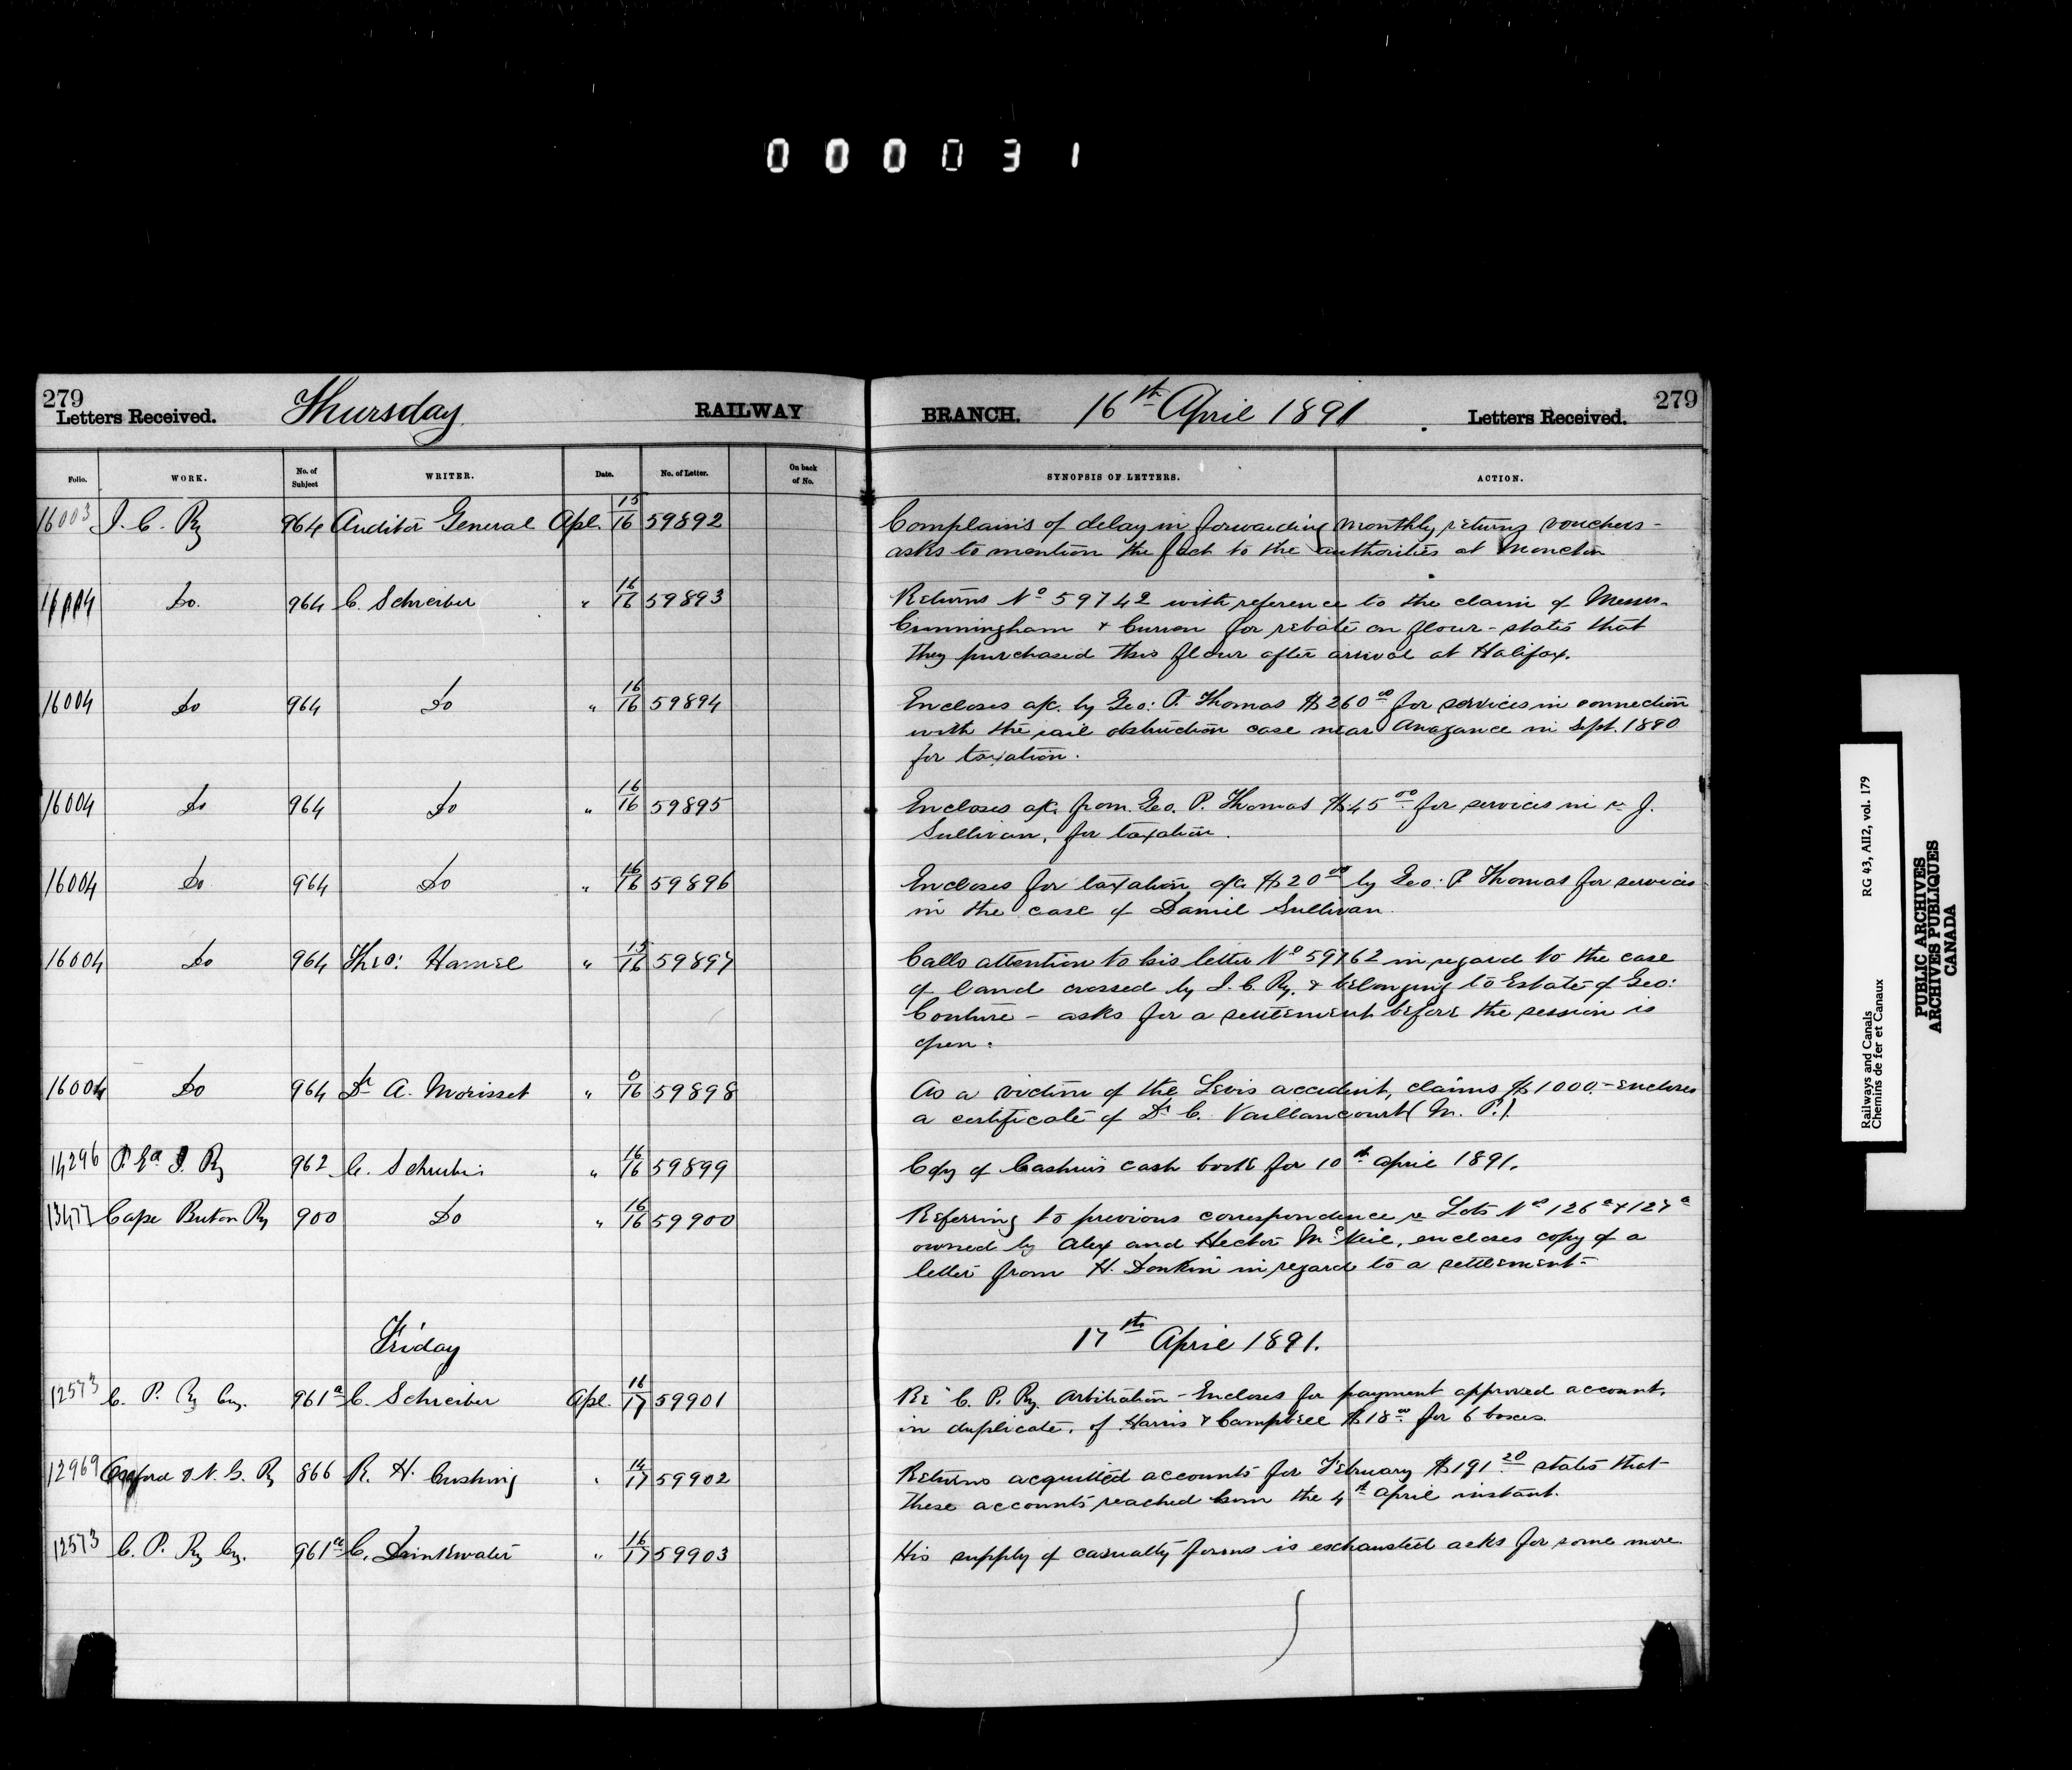 000031
279 279
Letters Received. Thursday RAILWAY BRANCH. 16th April 1891 Letters Received.
Folio. WORK. No. of Subject WRITER. Date. No. of Letter. On back of No. SYNOPSIS OF LETTERS. ACTION.
16003 I. C. Ry 964 Auditor General Apl. 15/16 59892 Complains of delay in forwarding monthly returns vouchers -
asks to mention the fact to the authorities at Moncton
16004 Do. 964 C. Schreiber " 16/16 59893 Returns No 59742 with reference to the claim of Messrs.
Cunningham & Curren for rebate on flour - states that
they purchased this flour after arrival at Halifax.
16004 Do 964 Do " 16/16 59894 Encloses a/c. by Geo: P. Thomas $260 00 for services in connection
with the rail obstruction case near Anagance in Sept. 1890
for taxation.
16004 Do 964 Do " 16/16 59895 Encloses a/c. from Geo. P. Thomas $45 00 for services in re J.
Sullivan, for taxation.
16004 Do 964 Do " 16/16 59896 Encloses for taxation a/c $20 00 by Geo: P Thomas for services
in the case of Daniel Sullivan.
16004 Do 964 Theo: Hamel " 15/16 59897 Calls attention to his letter No 59762 in regard to the case
of land crossed by I. C. Ry. & belonging to Estate of Geo:
Couture - asks for a settlement before the session is
open.
16004 Do 964 Dr A. Morisset " 0/16 59898 As a victim of the Levis accident, claims $1000.- encloses
a certificate of Dr C. Vaillancourt (M. P.)
14296 P. Ed I. Ry 962 C. Schreiber " 16/16 59899 Copy of Cashier's cash book for 10th April 1891.
13477 Cape Breton Ry 900 Do " 16/16 59900 Referring to previous correspondence re Lots Nos 126a & 127a
owned by Alex and Hector McNeil, encloses copy of a
letter from H. Donkin in regard to a settlement-
Friday 17th April 1891.
12573 C. P. Ry Cy. 961a C. Schreiber Apl. 16/17 59901 Re C. P. Ry. Arbitration - Encloses for payment approved account,
in duplicate, of Harris & Campbell $18 00 for 6 boxes.
12969 Oxford & N. G. Ry 866 R. H. Cushing " 14/17 59902 Returns acquitted accounts for February $191.20 states that
these accounts reached him the 4th April instant.
12573 C. P. Ry Cy. 961a C. Drinkwater " 16/17 59903 His supply of casualty forms is exhausted asks for some more.
Railways and Canals RG 43, AII2, vol. 179
Chemins de fer et Canaux
PUBLIC ARCHIVES
ARCHIVES PUBLIQUES
CANADA